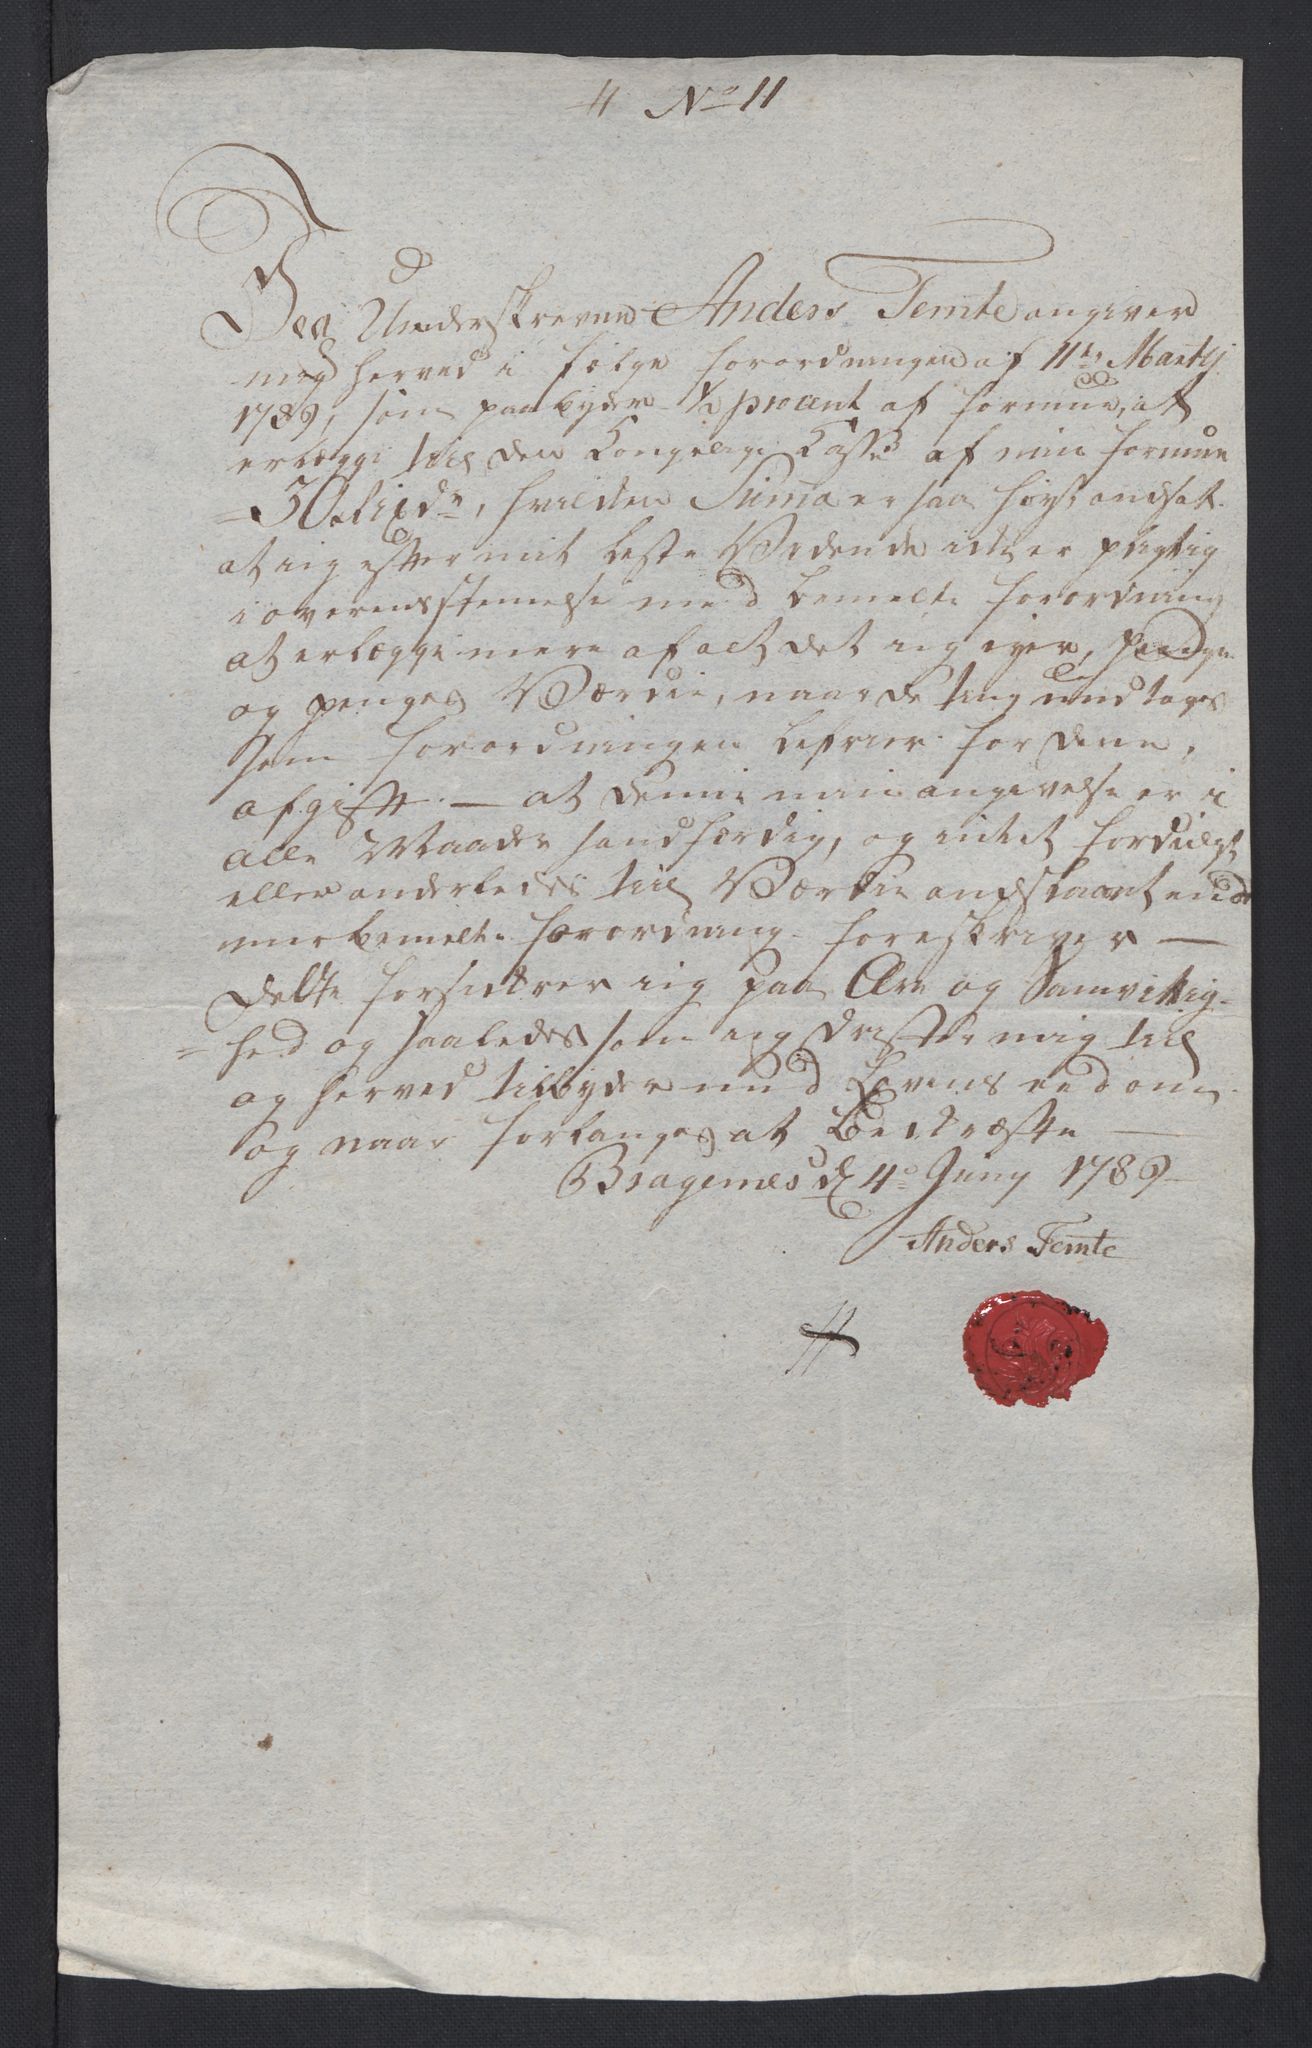 4 No 11
Jeg Underskrevne Anders Temte angiver
meg herved i følge forordningen af 11te Martij
1789, som paabyder ½ procent af formue, at
erlægge till den Kongelige Casse af min formue
30 rixdr, hvilken Suma er saa høyt andsat
at ieg efter mit beste Vidende icke er pligtig
i overensstemelse med bemelte forordning
at erlægge mere af alt det ieg eyer, penge
og penges Værdie, naar de ting undtages
som forordningen befrier for denne
afgift. — at denne min angivelse er i
alle Maader sandfærdig, og intet fordulgt
eller anderledes till Værdie andslaaet end
meerbemelte forordning foreskriver —
Dette forsickrer ieg paa Ære og Samvittig-
=hed og saaledes som ieg drister mig till
og herved tilbyder med Lovens eed om
og naar forlanges at Bekræfte —
Bragenes d 4de Juny 1789
Anders Temte